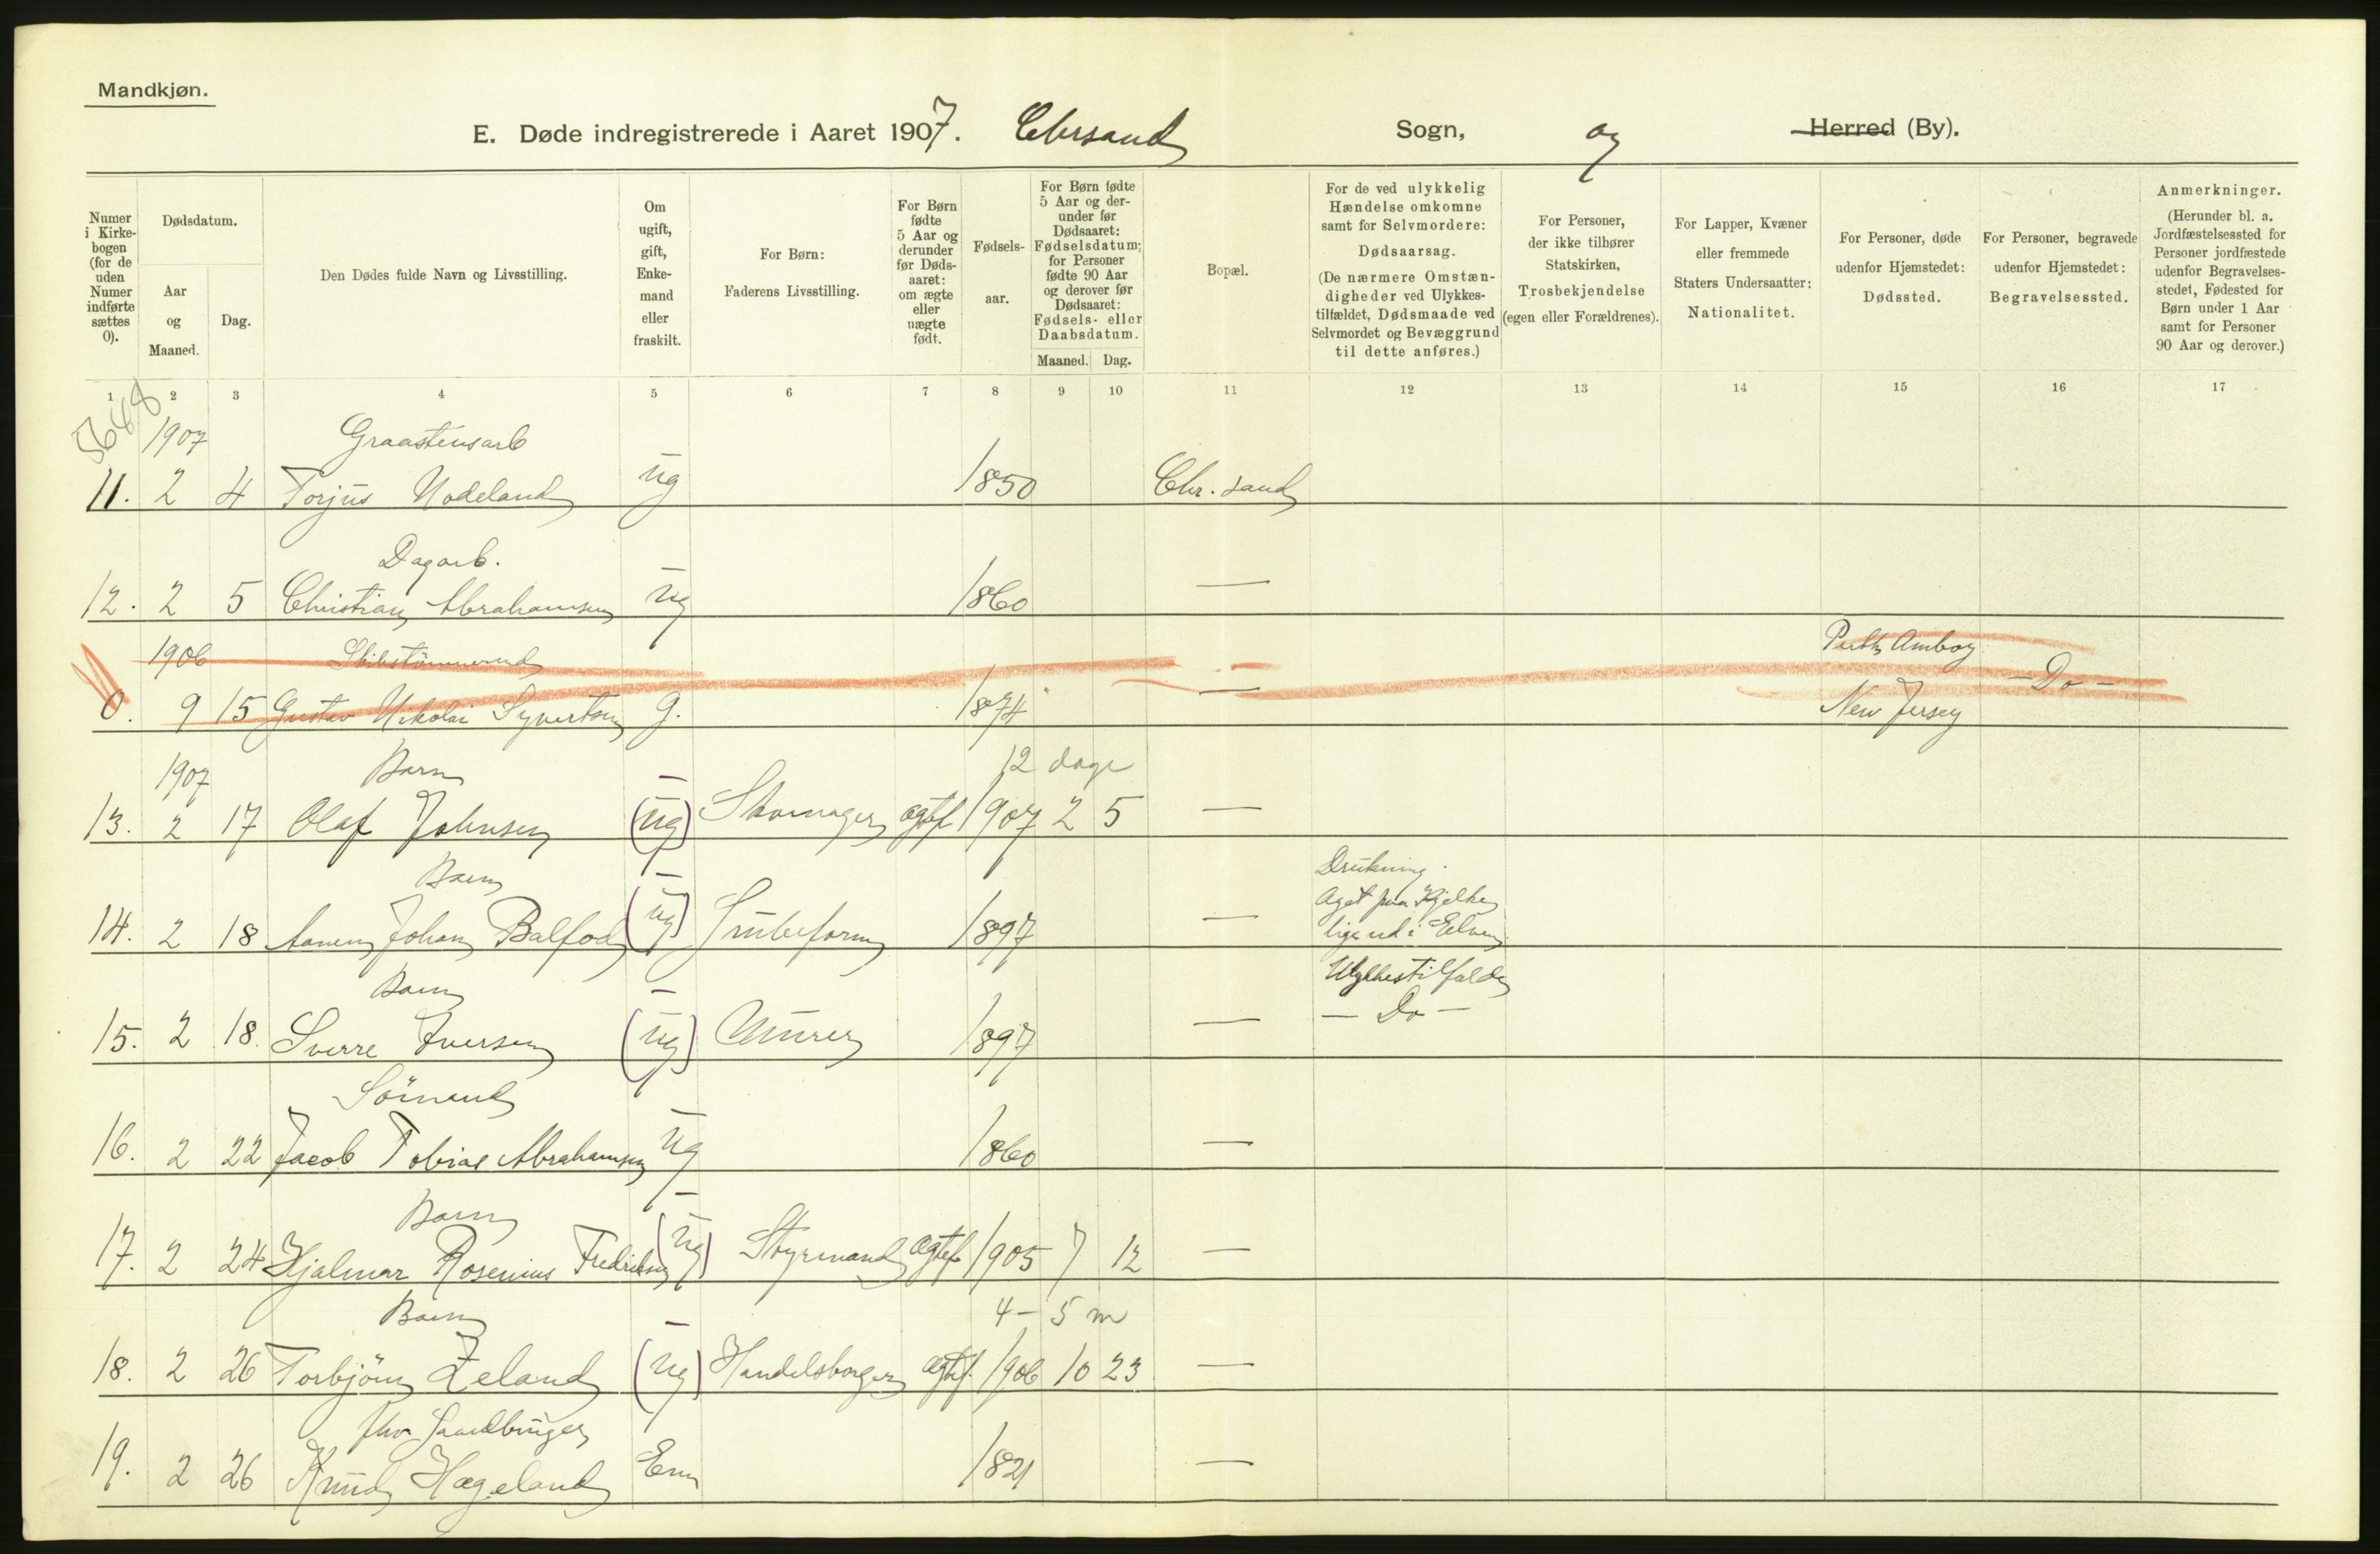 Mandkjøn.
E. Døde indregistrerede i Aaret 1907. Chrsand Sogn, og Herred (By).
Numer i Kirkebogen (for de uden Numer indførte sættes 0).
Dødsdatum.
Aar og Maaned.
Dag.
Den Dødes fulde Navn og Livsstilling.
Om ugift, gift, Enkemand eller fraskilt.
For Børn: Faderens Livsstilling.
For Børn fødte 5 Aar og derunder før Dødsaaret: om ægte eller uægte født.
Fødselsaar.
For Børn fødte 5 Aar og derunder før Dødsaaret: Fødselsdatum; for Personer fødte 90 Aar og derover før Dødsaaret: Fødsels- eller Daabsdatum.
Maaned. Dag.
Bopæl.
For de ved ulykkelig Hændelse omkomne samt for Selvmordere: Dødsaarsag. (De nærmere Omstændigheder ved Ulykkestilfældet, Dødsmaade ved Selvmordet og Bevæggrund til dette anføres.)
For Personer, der ikke tilhører Statskirken, Trosbekjendelse (egen eller Forældrenes).
For Lapper, Kvæner eller fremmede Staters Undersaatter: Nationalitet.
For Personer, døde udenfor Hjemstedet: Dødssted.
For Personer, begravede udenfor Hjemstedet: Begravelsessted.
Anmerkninger. (Herunder bl. a. Jordfæstelsessted for Personer jordfæstede udenfor Begravelsesstedet, Fødested for Børn under 1 Aar samt for Personer 90 Aar og derover.)
1 2 3 4 5 6 7 8 9 10 11 12 13 14 15 16 17
1907 Graastensarb
11. 2 4 Torjus Nodeland ug 1850 Chr.sand
Dagarb.
12. 2 5 Christian Abrahamsen ug 1860 —
1906 Skibstömmermd Perth Amboy
0. 9 15 Gustav Nikolai Syvertsen g. 1874 — New Jersey - Do -
1907 Barn 12 dage
13. 2 17 Olaf Johnsen (ug) Skomager ægtef 1907 2 5 —
Barn Drukning.
Aget paa Kjelke
14. 2 18 Aanen Johan Balfod (ug) Grubeform 1897 — lige ud i Elven
Barn Ulykkestilfælde
15. 2 18. Sverre Iversen (ug) Murer 1897 — — Do —
Sömand
16. 2 22 Jacob Tobias Abrahamsen ug 1860 —
Barn
17. 2 24 Hjalmar Rosenius Fredriksen (ug) Styrmand ægtef 1905 7 12 —
Barn 4 - 5 m
18. 2 26 Torbjörn Zeland (ug) Handelsborger ægtef. 1906 10 23 —
fhv Gaardbruger
19. 2 26 Knud Hægeland Em 1821 —